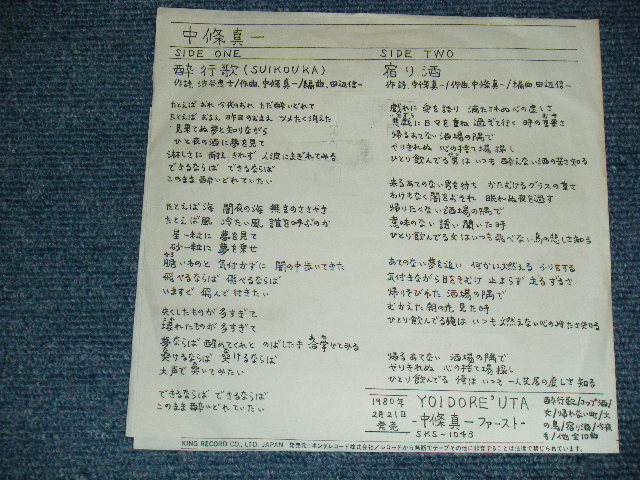 中條真一
SIDE ONE
酔行歌(SUIKOUKA)
作詩.渋谷恵士/作曲.中條真一/編曲.田辺信一
たとえば おれ 今夜のおれ ただ酔いどれて
たとえば おまえ 昨日のおまえ ツメたく消えた
見果てぬ夢と知りながら
ひと夜の酒に夢を見て
淋しさに 耐えきれず 人波にまぎれてみる
できるならば できるならば
このまま 酔いどれていたい
たとえば海 闇夜の海 無言のささやき
たとえば風 冷たい風 誰を呼ぶのか
星一粒に 夢を見て
砂一粒に 夢を乗せ
脆いものと 気付かずに 闇の中歩いてきた
飛べるならば 飛べるならば
いますぐ 飛んで行きたい
失くしたものが多すぎて
壊れたものが多すぎて
夢ならば 醒めてくれと のばした手
笑けるならば 笑けるならば
大声で 笑いてみたい
できるならば できるならば
このまま 酔いどれていたい
SIDE TWO
宿り酒
作詩.中條真一/作曲.中條真一/編曲.田辺信一
戯れに 愛を語り 満たされぬ心の虚しさ
日々を重ね 過ぎて行く 時の重さ
帰るあてない 酒場の隅で
やりきれぬ 心の捨て場 探し
ひとり飲んでる男は いつも 酔えない酒の苦さ知る
来るあてのない男を待ち かたむけるグラスの重さ
わけもなく 闇をおそれ 眠れぬ夜を過す
帰りたくない 酒場の隅で
意味のない 誘い 聞いた時
ひとり飲んでる女は いつも 飛べない鳥の悲しさ知る
あてのない夢を追い 何かに燃える ふりをする
気付きながら目をそむけ 止まらず 走るずるさ
帰りそびれた 酒場の隅で
むかえた朝の光 見た時
ひとり飲んでる俺は いつも 燃えない心の冷たさ知る
帰るあてない 酒場の隅で
やりきれぬ 心の捨て場 探し
ひとり飲んでる 俺は いつも 一人芝居の虚しさ 知る
1980年
2月21日
発売
YOIDORE'UTA
-中條真一ファースト-
SKS-1043
酔行歌/コップ酒/
女/帰れない町/火
の鳥/宿り酒/今夜
も/他全10曲
KING RECORD CO., LTD. JAPAN 発売元:キングレコード株式会社/レコードから無断でテープその他に録音することは法律で禁じられています。